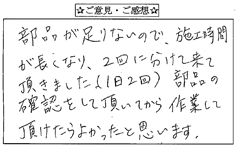 ☆ご意見・ご感想☆
部品が足りないので、施工時間
が長くなり、2回に分けて来て
頂きました(1日2回) 部品の
確認をして頂いてから作業して
頂けたらよかったと思います。